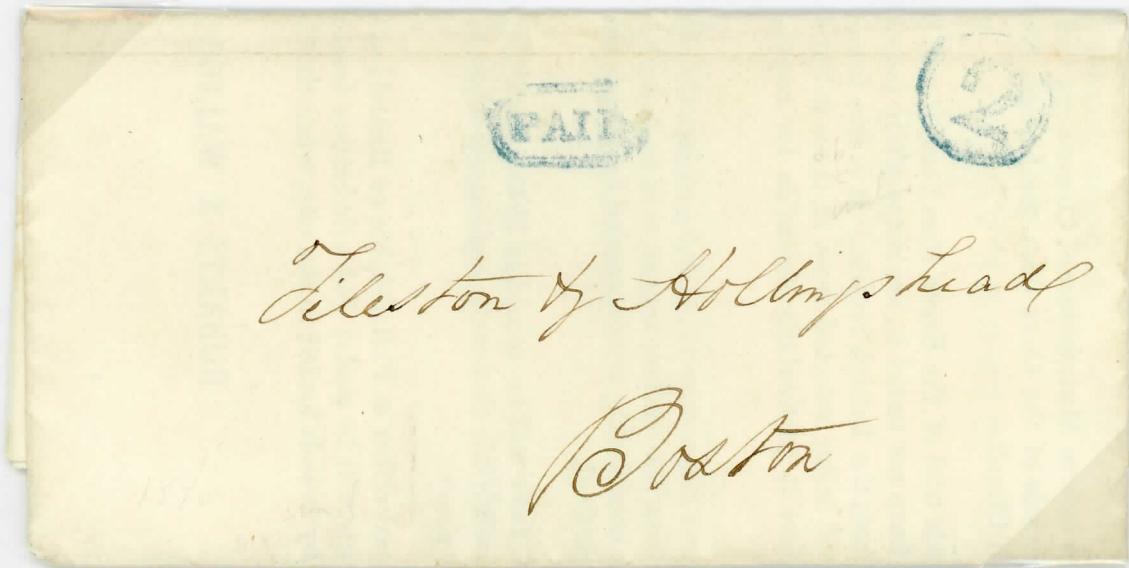 PAID
2
Tileston & Hollingshead
Boston